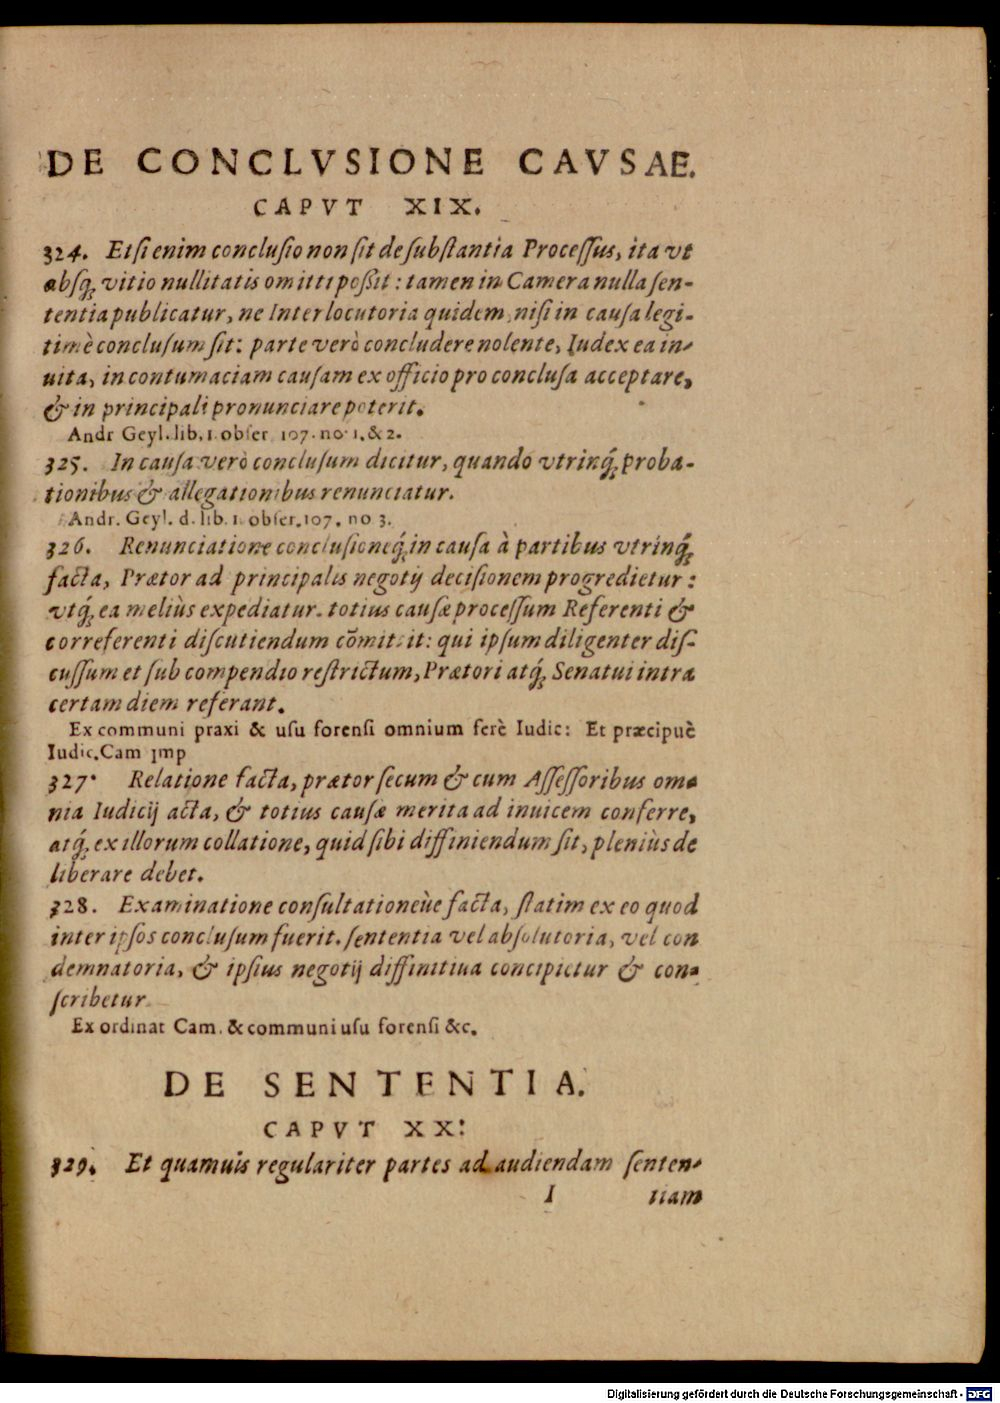 DE CONCLVSIONE CAVSAE.
CAPVT XIX.
324. Etſi enim concluſio non ſit de ſubſtantia Proceſſus, ita vt
abſq́; vitio nullitatis omitti poßit: tamen in Camera nulla ſen-
tentia publicatur, ne Interlocutoria quidem, niſi in cauſa legi-
timè concluſum ſit: parte verò concludere nolente, Iudex ea in-
uita, in contumaciam cauſam ex officio pro concluſa acceptare,
& in principali pronunciare poterit.
Andr Geyl. lib. 1. obſer. 107. no. 1. & 2.
325. In cauſa verò concluſum dicitur, quando vtrinq́; proba-
tionibus & allegationibus renunciatur.
Andr. Geyl. d. lib. 1. obſer. 107. no 3.
326. Renunciatione concluſioneq́; in cauſa à partibus vtrinq́;
facta, Prætor ad principalis negotij deciſionem progredietur:
vtq́; ea meliùs expediatur. totius cauſæ proceſſum Referenti &
correferenti diſcutiendum cõmittit: qui ipſum diligenter diſ-
cuſſum et ſub compendio reſtrictum, Prætori atq́; Senatui intra
certam diem referant.
Ex communi praxi & uſu forenſi omnium ferè Iudic: Et præcipuè
Iudic. Cam Imp
327. Relatione facta, prætor ſecum & cum Aſſeſſoribus om-
nia Iudicij acta, & totius cauſæ merita ad inuicem conferre,
atq́; ex illorum collatione, quid ſibi diffiniendum ſit, pleniùs de
liberare debet.
328. Examinatione conſultationeúe facta, ſtatim ex eo quod
inter ipſos concluſum fuerit. ſententia vel abſolutoria, vel con
demnatoria, & ipſius negotij diffinitiua concipietur & con-
ſcribetur.
Ex ordinat Cam. & communi uſu forenſi &c.
DE SENTENTIA.
CAPVT XX:
329. Et quamuis regulariter partes ad audiendam ſenten-
I tiam
Digitalisierung gefördert durch die Deutsche Forschungsgemeinschaft - DFG